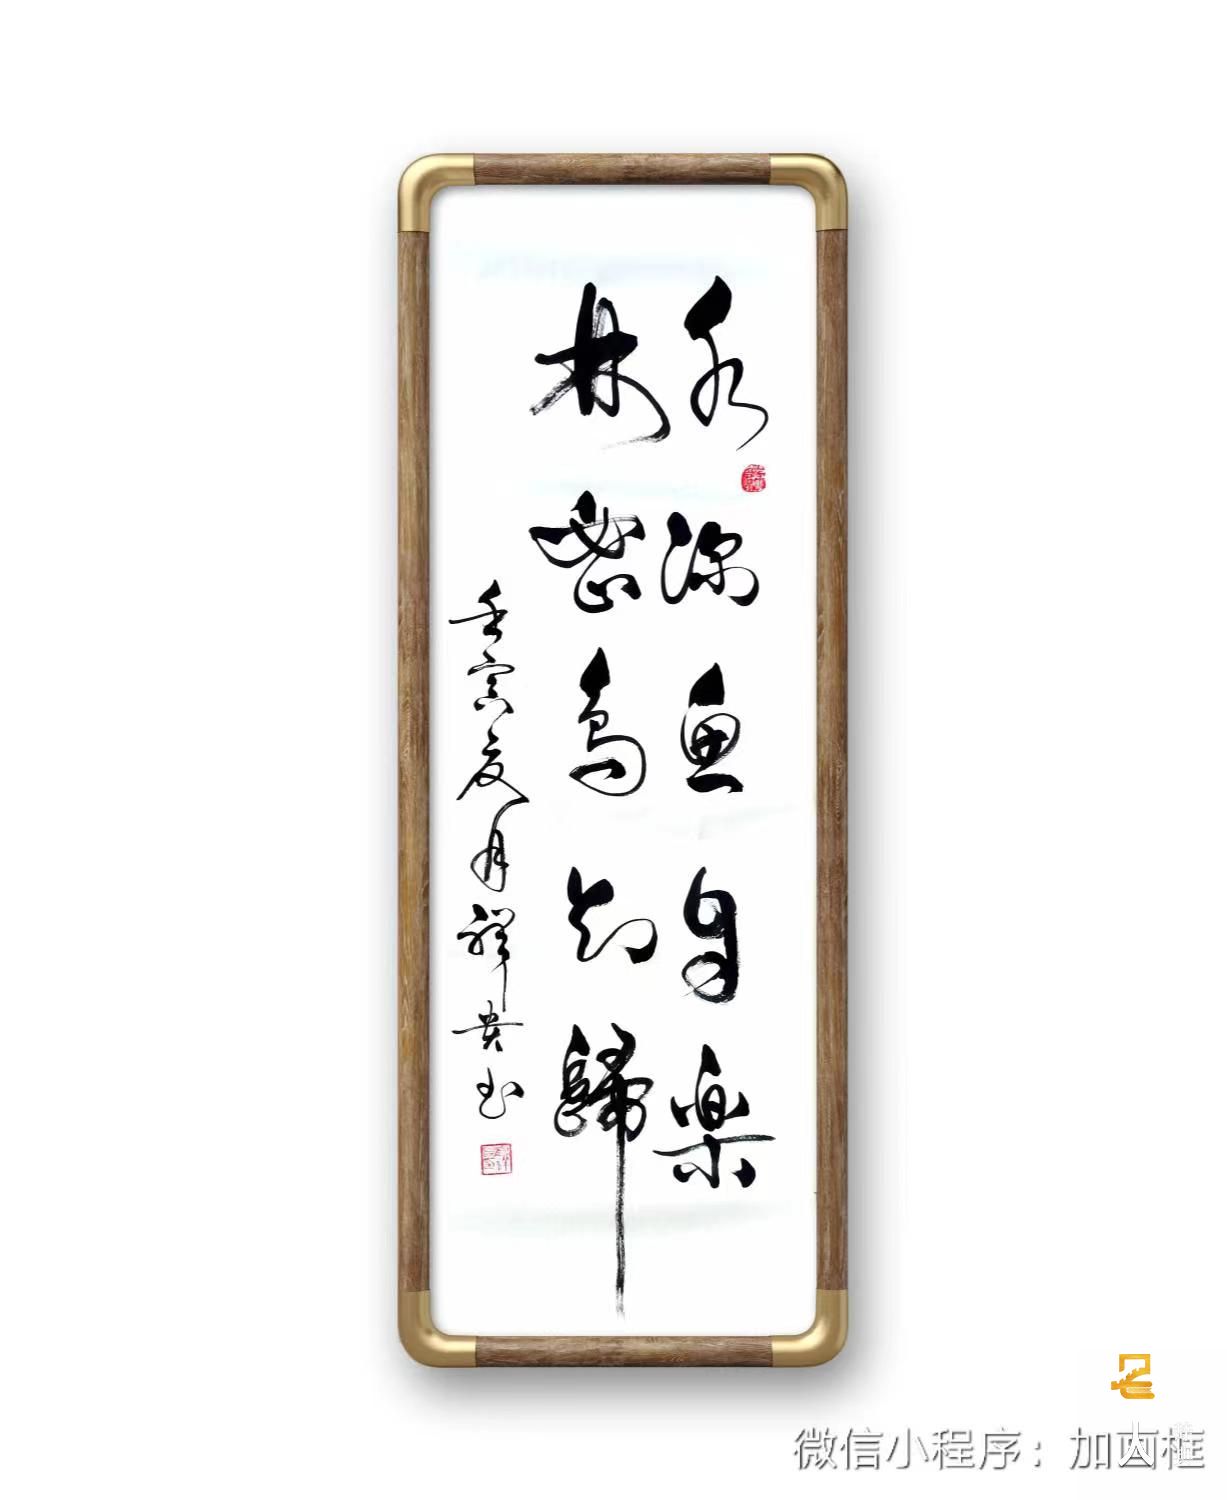 水深魚自樂
林密鳥知歸
壬寅夏月祥贵书
微信小程序：加画框